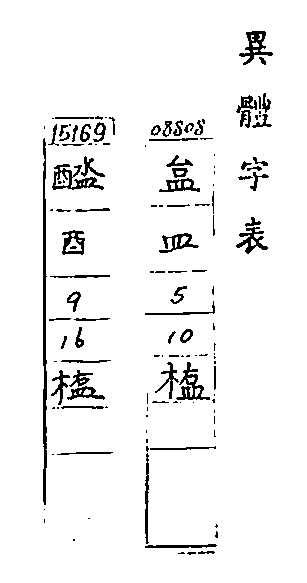 異體字表
08808
皿
5
10
榼
15169
酉
9
16
榼